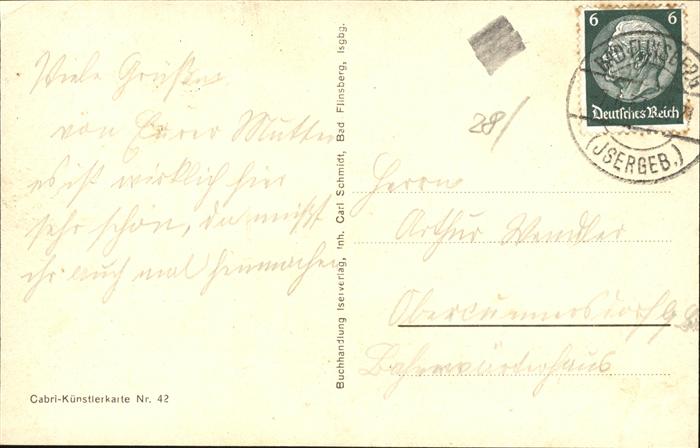 Viele Grüße
von Eurer Mutter
es ist wirklich hier
sehr schön, da müßt
ihr auch mal hinmachen
Cabri-Künstlerkarte Nr. 42
Buchhandlung Iserverlag, Inh. Carl Schmidt, Bad Flinsberg, Isgbg.
28/
6 6
Deutsches Reich
BAD FLINSBERG
(ISERGEB.)
Herrn
Arthur Wendler
Obercunnersdorf
Bahnwärterhaus